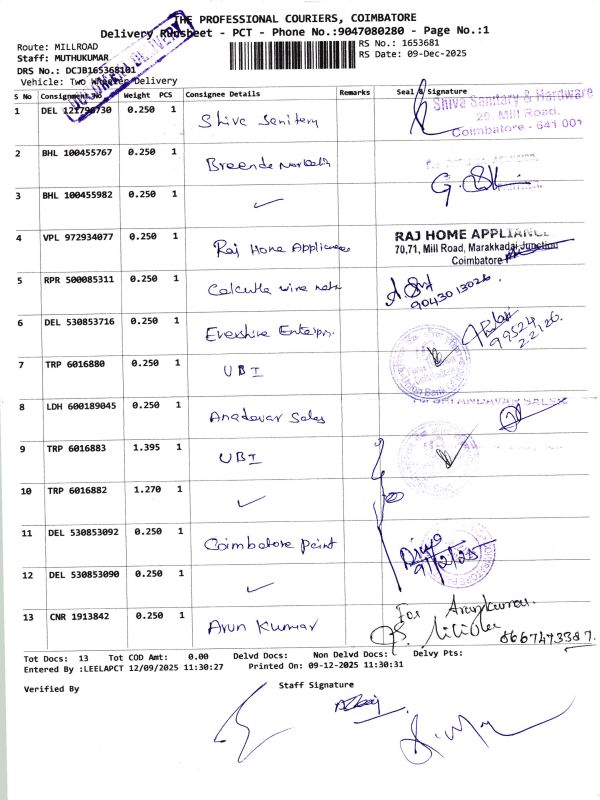 THE PROFESSIONAL COURIERS, COIMBATORE
Delivery Runsheet - PCT - Phone No.:9047080280 - Page No.:1
Route: MILLROAD
RS No.: 1653681
Staff: MUTHUKUMAR
RS Date: 09-Dec-2025
DRS No.: DCJB165368101
Vehicle: Two Wheeler Delivery
S No Consignment No Weight PCS Consignee Details Remarks Seal & Signature
1 DEL 121796730 0.250 1 Shiva Sanitery
Shiva Sanitary & Hardware
29, Mill Road,
Coimbatore - 641 001
2 BHL 100455767 0.250 1
3 BHL 100455982 0.250 1 ✓
4 VPL 972934077 0.250 1 Raj Home Appliances
RAJ HOME APPLIANCE
70,71, Mill Road, Marakkadai Junction
Coimbatore
5 RPR 500085311 0.250 1 Calcutta wire nets
9043013026
6 DEL 530853716 0.250 1 Evershine Enterpri.
99524
22126
7 TRP 6016880 0.250 1 UBI
8 LDH 600189045 0.250 1 Anadavar Sales
For SRI ANDAVAR SALES
9 TRP 6016883 1.395 1 UBI
10 TRP 6016882 1.270 1 ✓
11 DEL 530853092 0.250 1 Coimbatore paint
9/12/25
12 DEL 530853090 0.250 1 ✓
13 CNR 1913842 0.250 1 Arun Kumar
For Arunkumar.
8667473387.
Tot Docs: 13 Tot COD Amt: 0.00 Delvd Docs: Non Delvd Docs: Delvy Pts:
Entered By :LEELAPCT 12/09/2025 11:30:27 Printed On: 09-12-2025 11:30:31
Verified By Staff Signature